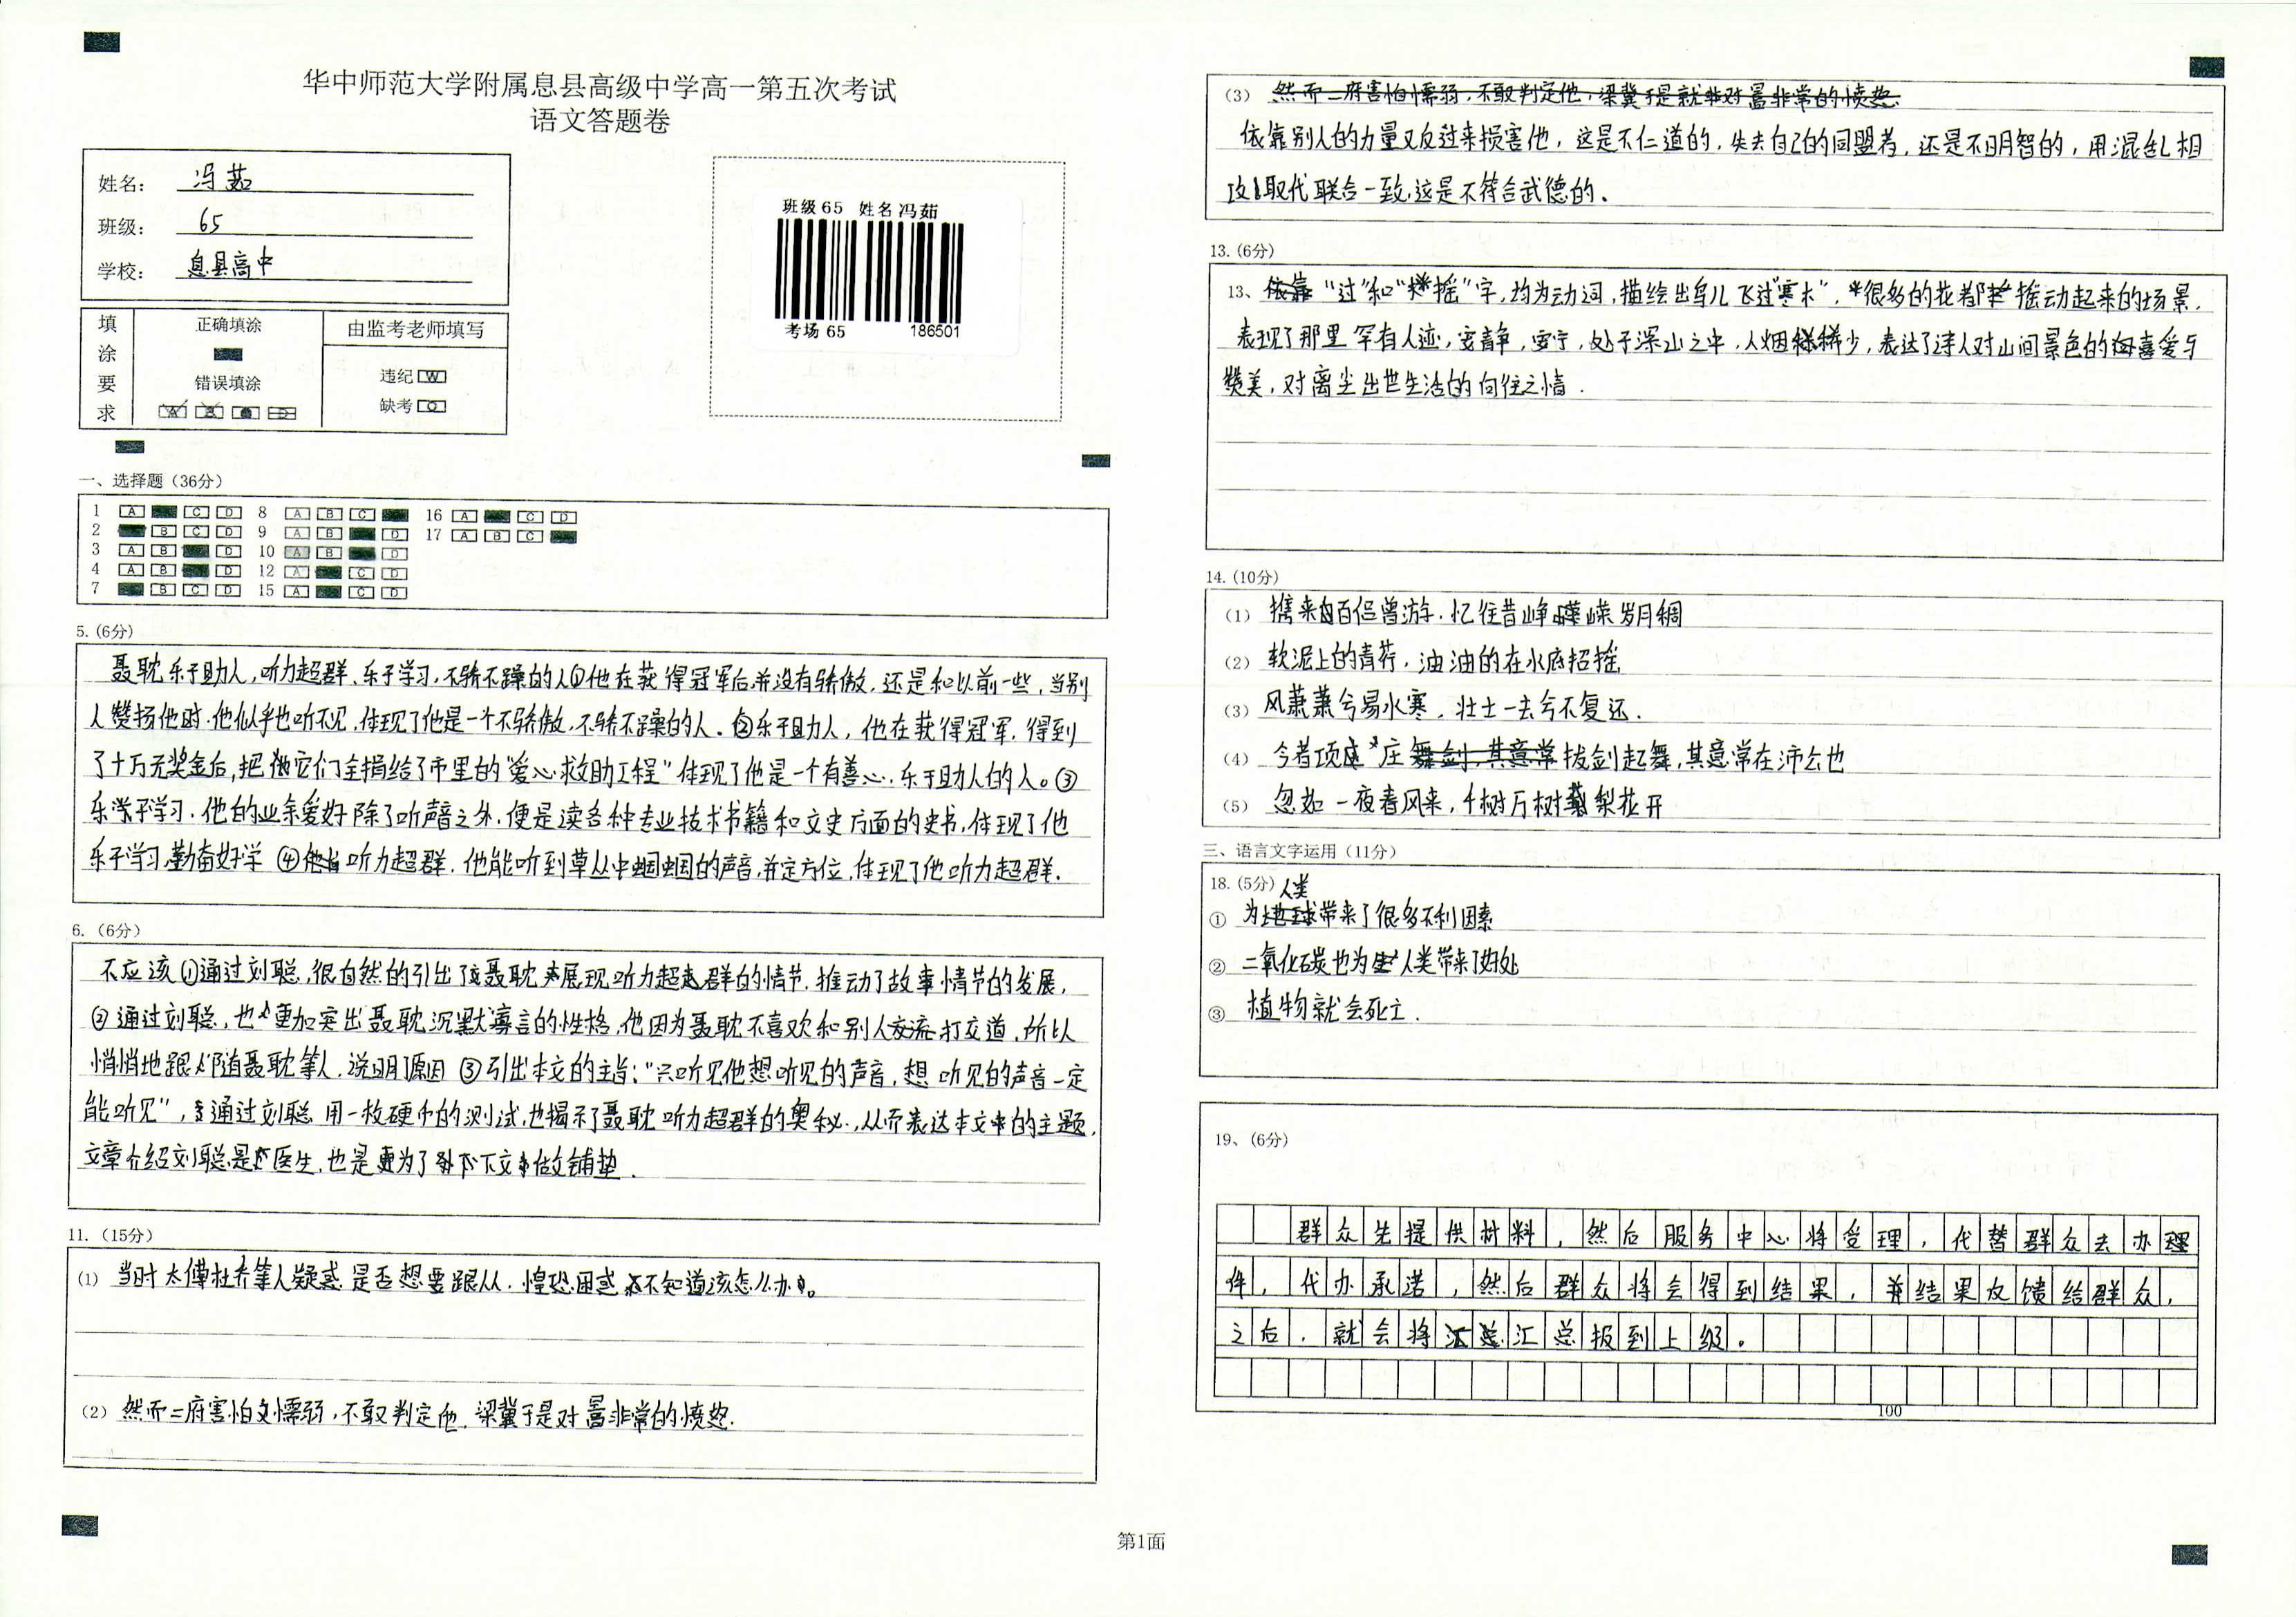 华中师范大学附属息县高级中学高一第五次考试
语文答题卷
姓名： 冯茹
班级： 65
学校： 息县高中
填涂要求
正确填涂
错误填涂
由监考老师填写
违纪 W
缺考 O
班级 65 姓名 冯茹
考场 65 186501
一、选择题（36分）
1 A C D 8 A B C 16 A C D
2 B C D 9 A B D 17 A B C
3 A B D 10 A B D
4 A B D 12 A C D
7 B C D 15 A C D
5. (6分)
聂耽乐于助人，听力超群、乐于学习，不骄不躁的人①他在获得冠军后并没有骄傲，还是和以前一些，当别
人赞扬他时，他似乎也听不见，体现了他是一个不骄傲，不骄不躁的人。②乐于助人，他在获得冠军，得到
了十万元奖金后，把它们全捐给了市里的“爱心救助工程”体现了他是一个有善心，乐于助人的人。③
乐于学习，他的业余爱好除了听声音之外，便是读各种专业技术书籍和文史方面的史书，体现了他
乐于学习，勤奋好学 ④听力超群，他能听到草丛中蝈蝈的声音，并定方位，体现了他听力超群．
6. （6分）
不应该①通过刘聪，很自然的引出了聂耽展现听力超群的情节，推动了故事情节的发展，
②通过刘聪，也更加突出聂耽沉默寡言的性格，他因为聂耽不喜欢和别人打交道，所以
悄悄地跟随聂耽等人，说明了原因 ③引出本文的主旨：“只听见他想听见的声音，想听见的声音一定
能听见”，通过刘聪用一枚硬币的测试，也揭示了聂耽听力超群的奥秘，从而表达本文的主题，
文章介绍刘聪是医生，也是为了下文做铺垫．
11. （15分）
(1) 当时太傅杜乔等人疑惑是否想要跟从，惶恐困惑不知道该怎么办。
(2) 然而二府害怕懦弱，不敢判定他，梁冀于是对暠非常的愤怒．
(3) 然而二府害怕懦弱，不敢判定他，梁冀于是就对暠非常的愤怒．
依靠别人的力量又反过来损害他，这是不仁道的，失去自己的同盟者，还是不明智的，用混乱相
攻取代联合一致，这是不符合武德的．
13. (6分)
13、“过”和“摇”字，均为动词，描绘出鸟儿飞过“寒木”，很多的花都摇动起来的场景，
表现了那里罕有人迹，安静，安宁，处于深山之中，人烟稀少，表达了诗人对山间景色的喜爱与
赞美，对离尘出世生活的向往之情．
14. (10分)
(1) 携来百侣曾游．忆往昔峥嵘岁月稠
(2) 软泥上的青荇，油油的在水底招摇
(3) 风萧萧兮易水寒，壮士一去兮不复还．
(4) 今者项庄舞剑，其意常拔剑起舞，其意常在沛公也
(5) 忽如一夜春风来，千树万树梨花开
三、语言文字运用（11分）
18. (5分)
① 为人类带来了很多不利因素
② 二氧化碳也为人类带来了好处
③ 植物就会死亡．
19、(6分)
群众先提供材料，然后服务中心将受理，代替群众去办理
件，代办承诺，然后群众将会得到结果，并结果反馈给群众，
之后，就会将汇总报到上级。
100
第1面